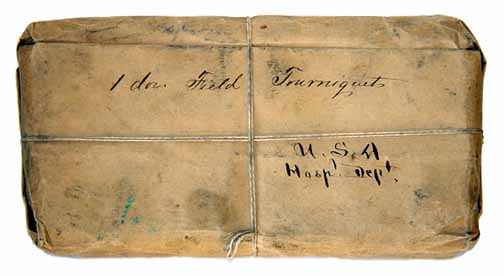 1 doz. Field Tourniquets
U.S.A
Hosp'l. Dep't.